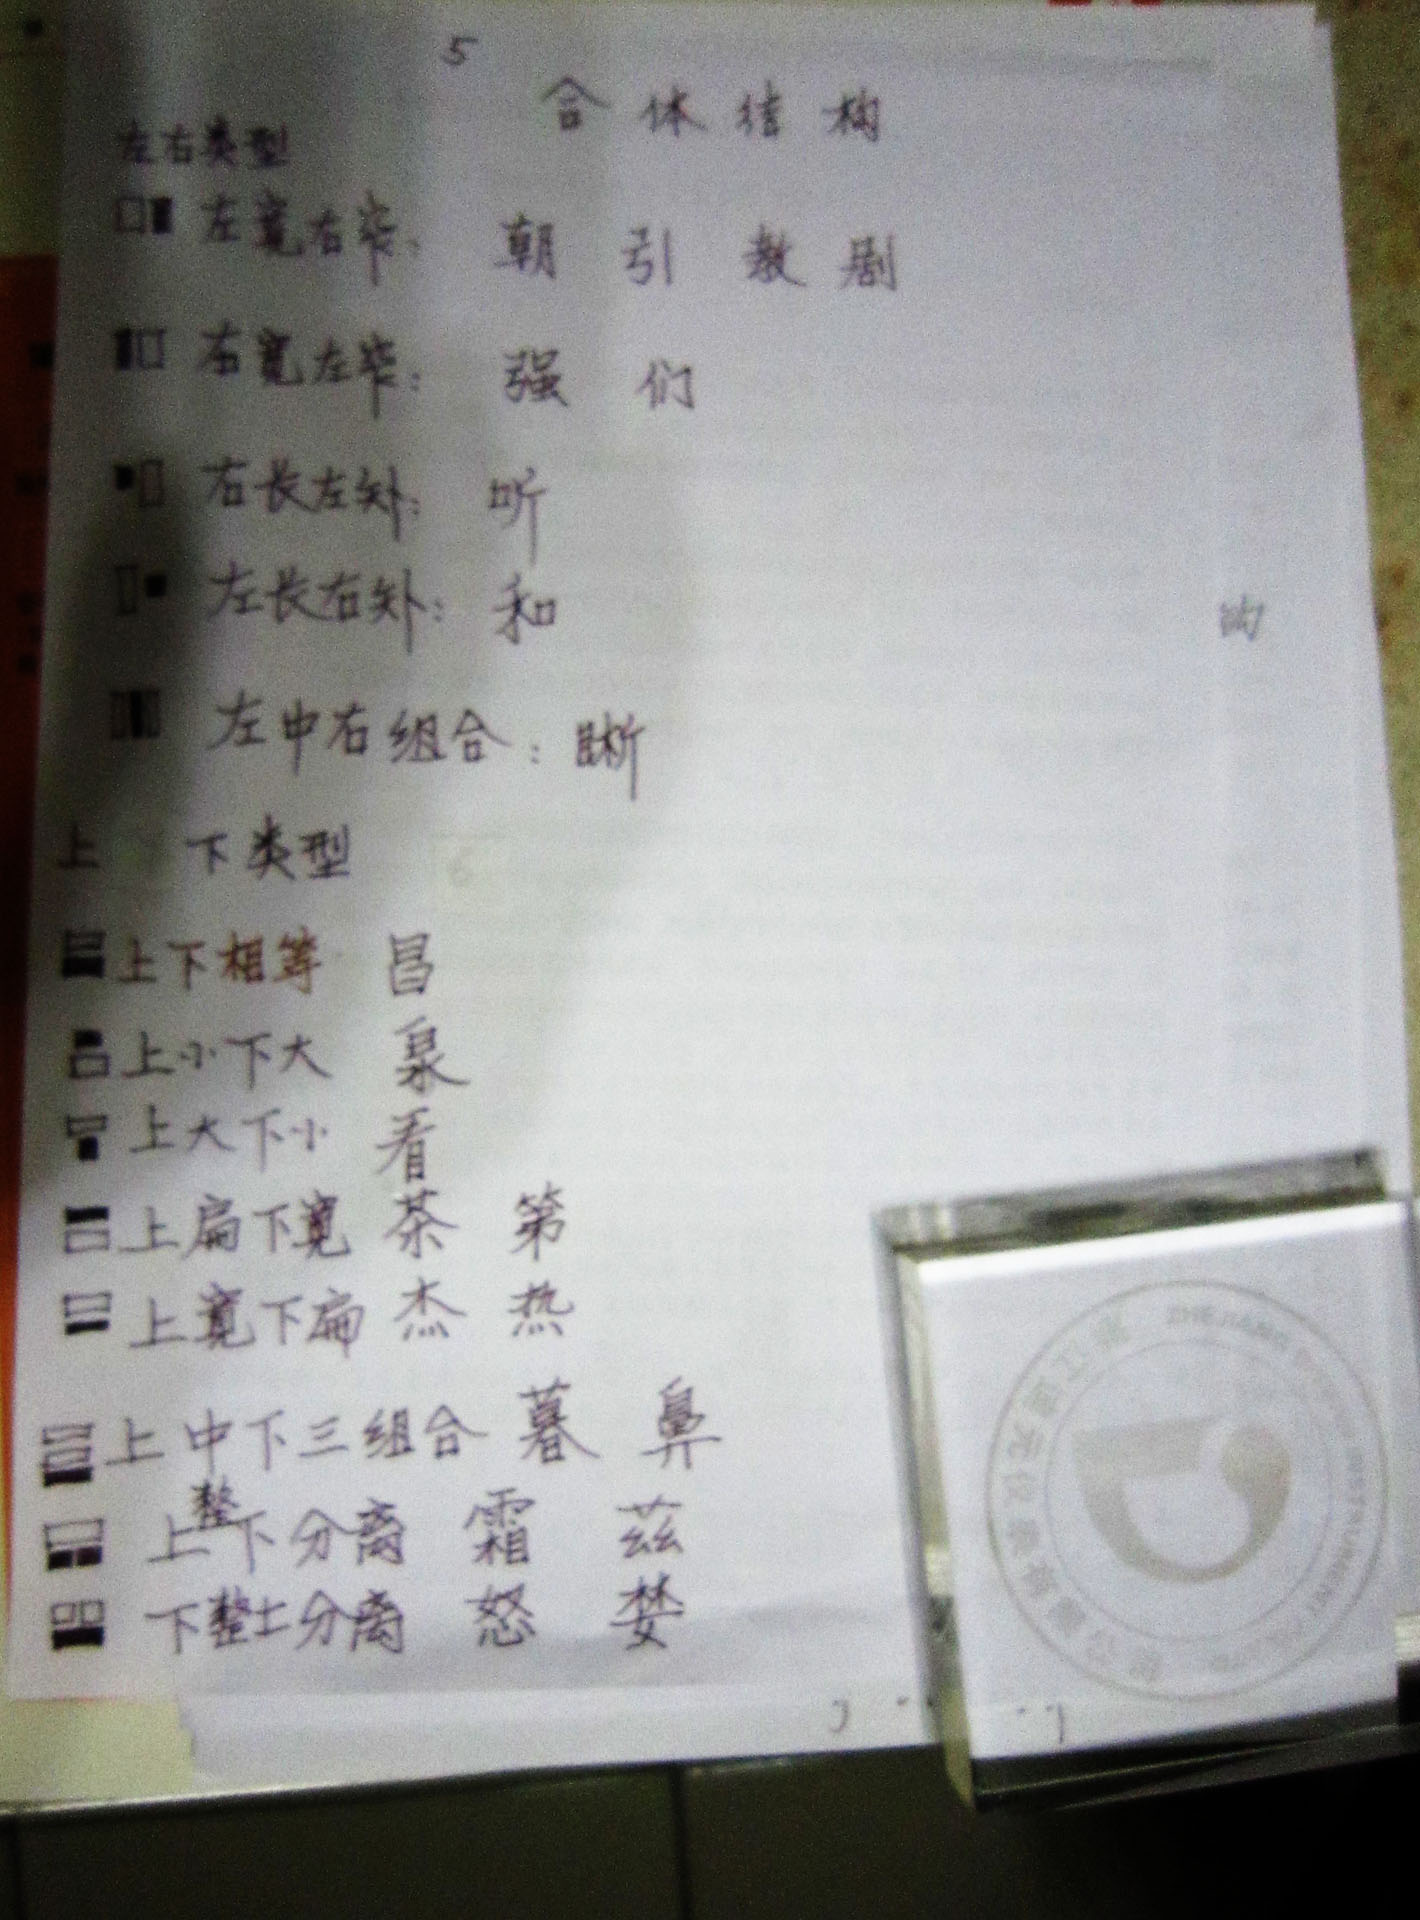 5
合体结构
左右类型
左宽右窄: 朝 引 敖 剧
右宽左窄: 强 们
右长左处: 听
左长右处: 和
左中右组合: 晰
上下类型
上下相等 昌
上小下大 泉
上大下小 看
上扁下宽 茶 第
上宽下扁 杰 热
上中下三组合 暮 鼻
上整下分离 霜 茲
下整上分离 怒 婪
ZHEJIANG